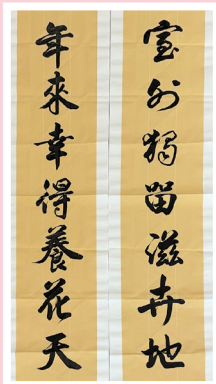 室外獨留滋卉地
年來幸得養花天